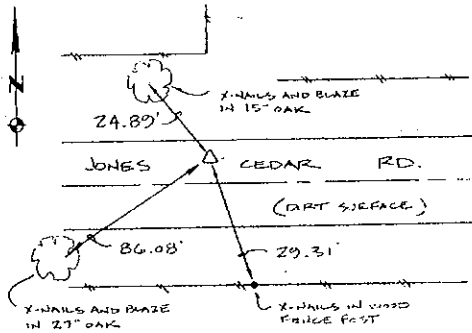 N
X-NAILS AND BLAZE
IN 15" OAK
24.89'
JONES CEDAR RD.
(DIRT SURFACE)
86.08'
29.31'
X-NAILS AND BLAZE
IN 27" OAK
X-NAILS IN WOOD
FENCE POST